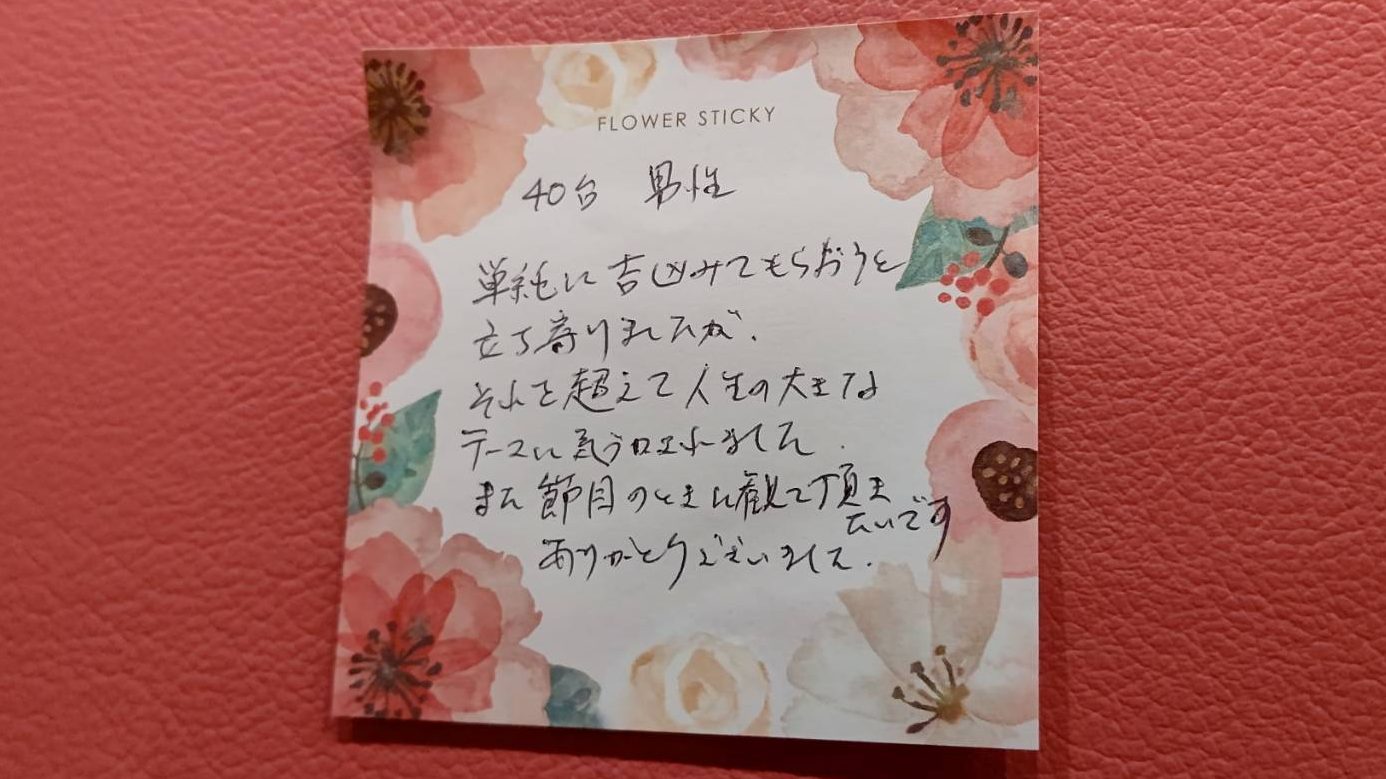 FLOWER STICKY
40台 男性
単純に吉凶みてもらおうと
立ち寄りましたが、
それを超えて人生の大きな
テーマに気づかされました.
また節目のときに観て頂き
たいです
ありがとうございました.